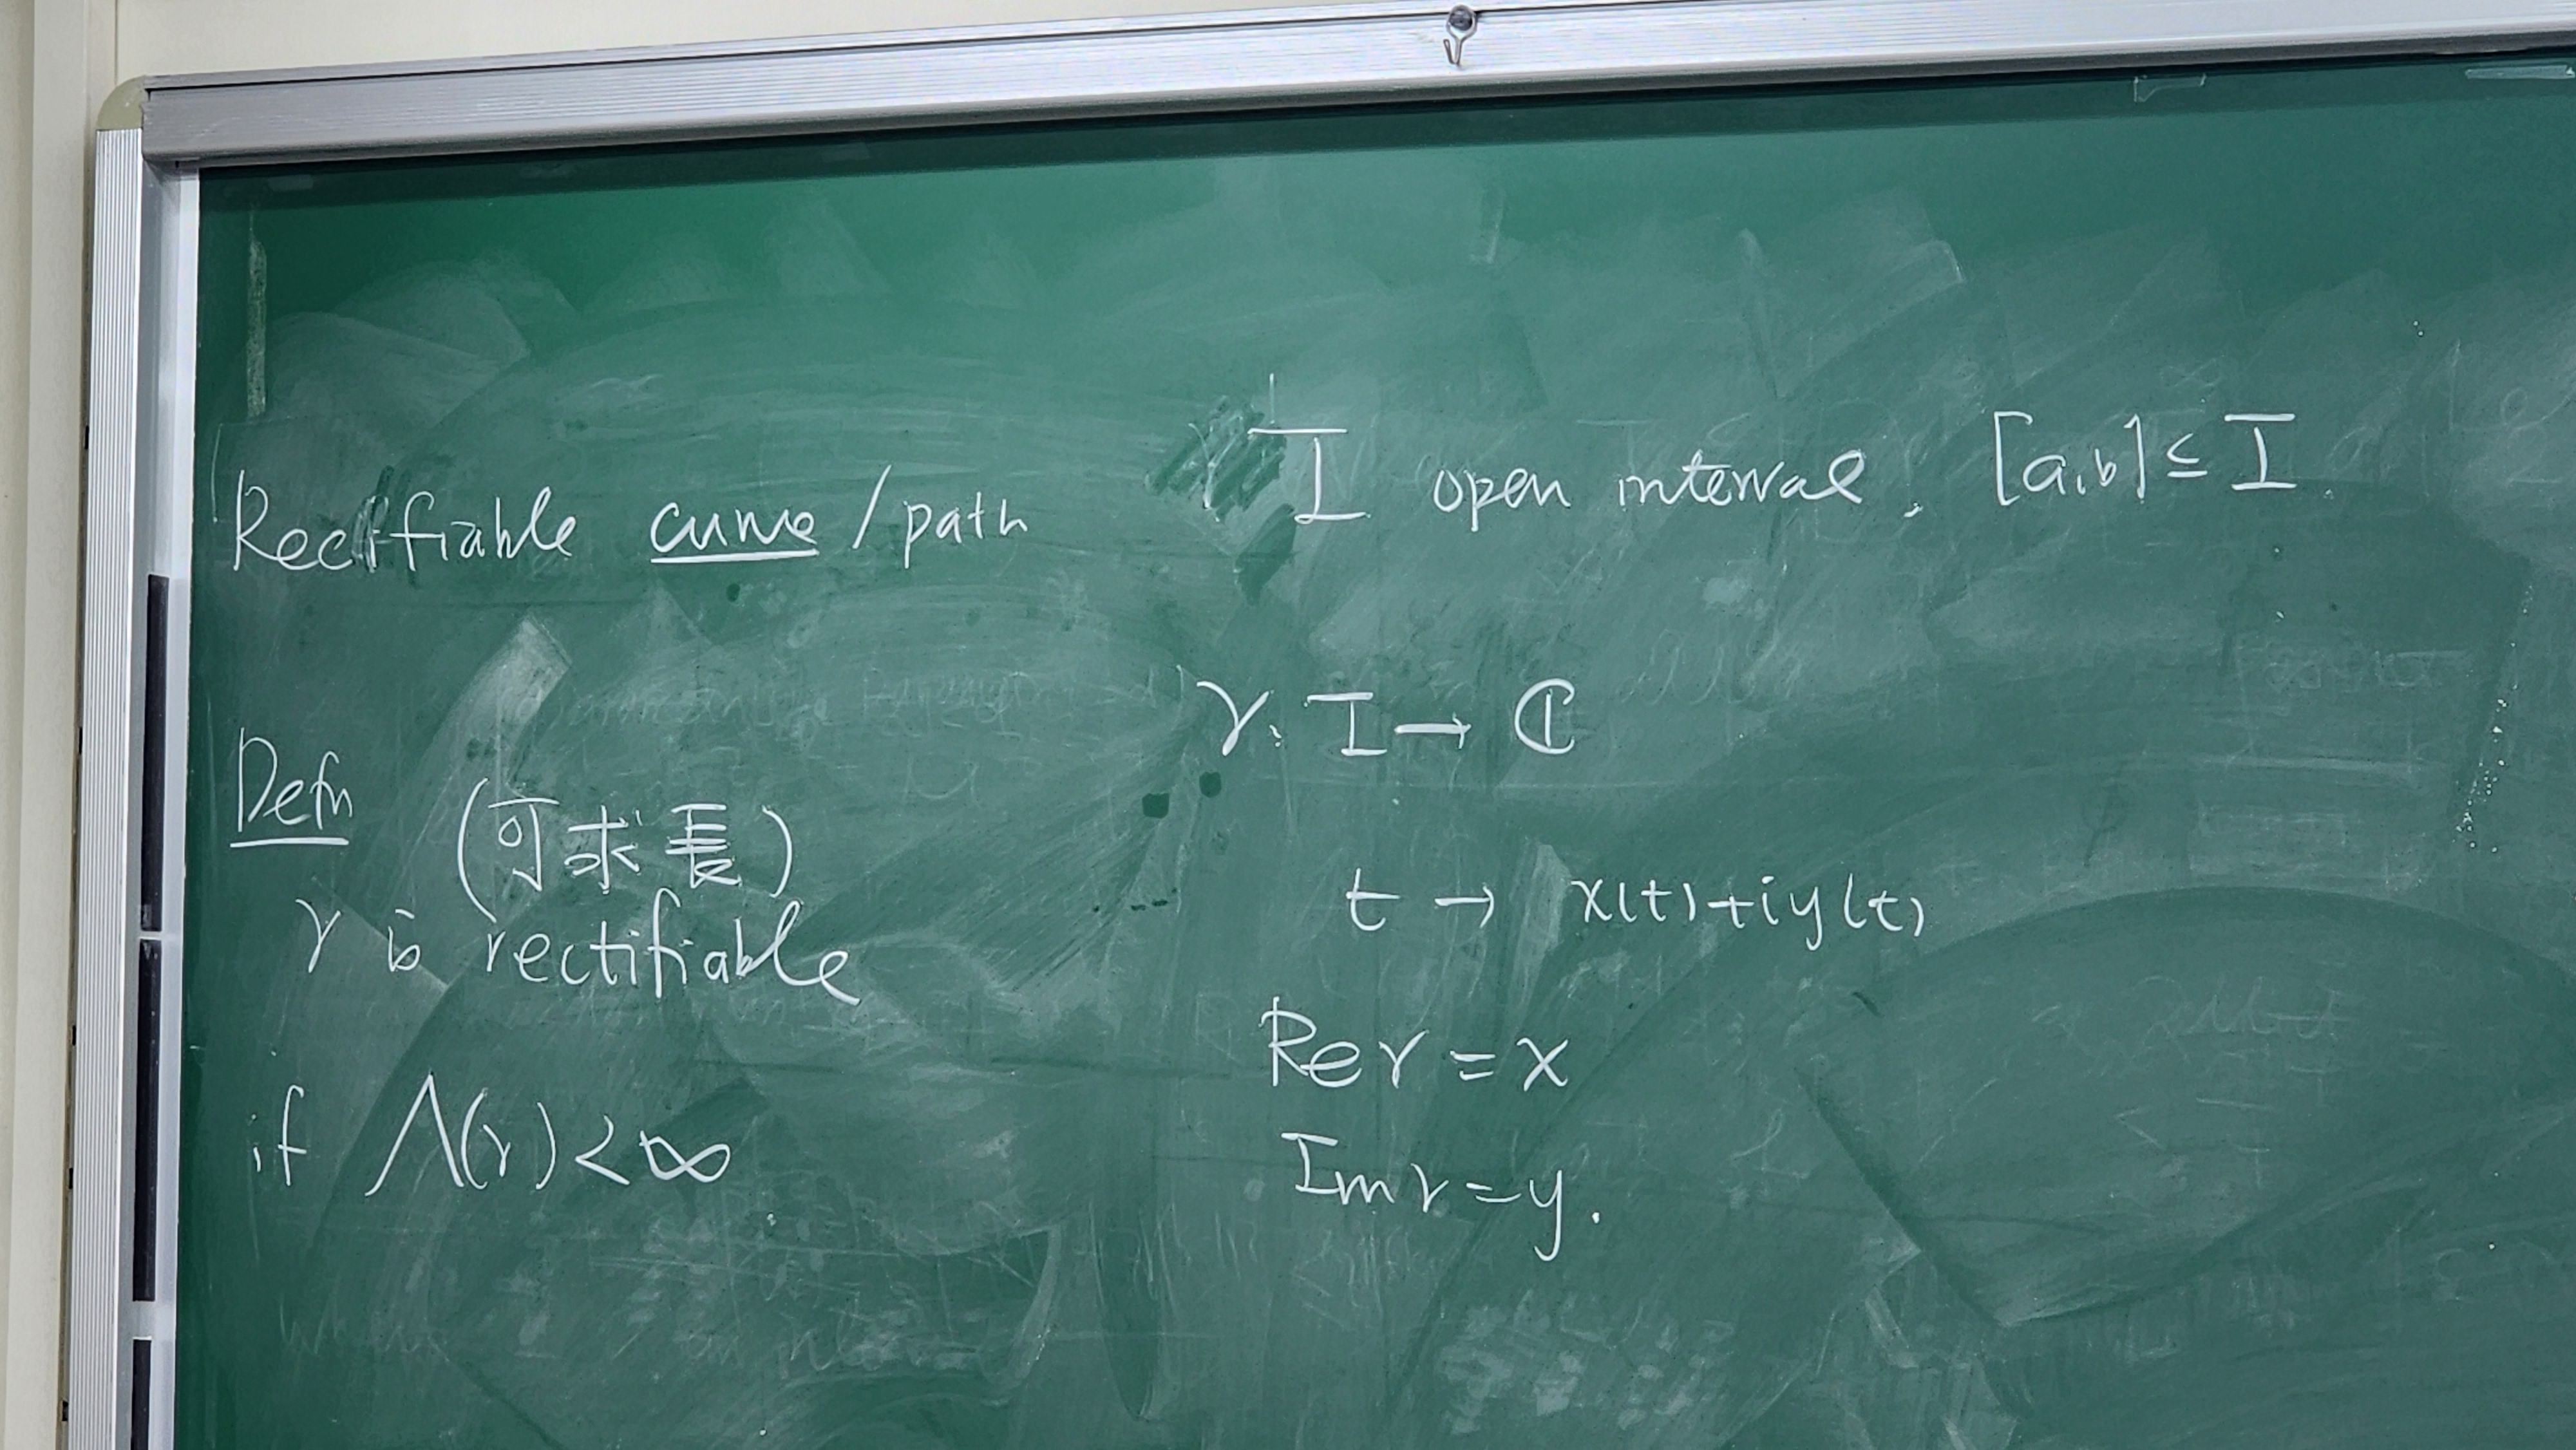 Rectifiable curve / path
Defn
(可求長)
γ is rectifiable
if Λ(γ) < ∞
I open interval, [a,b] ⊆ I.
γ: I → ℂ
t → x(t)+iy(t)
Re γ = x
Im γ = y.